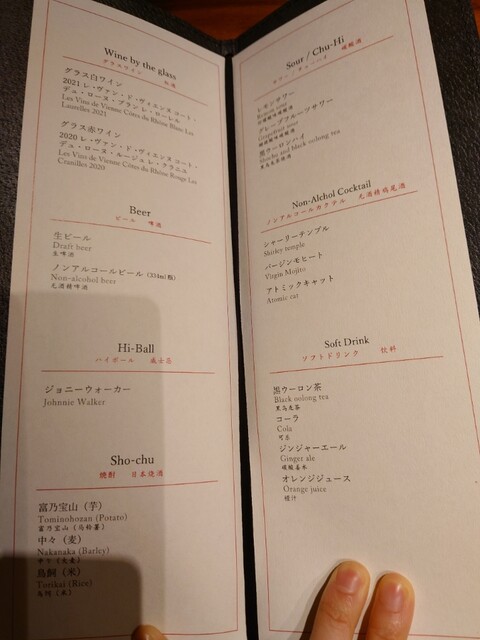 Wine by the glass
グラスワイン
グラス白ワイン
2021 レ・ヴァン・ド・ヴィエンヌ コート・
デュ・ローヌ・ブラン レ・ローレル
Les Vins de Vienne Côtes du Rhône Blanc Les
Laurelles 2021
グラス赤ワイン
2020 レ・ヴァン・ド・ヴィエンヌ コート・
デュ・ローヌ・ルージュ レ・クラニエ
Les Vins de Vienne Côtes du Rhône Rouge Les
Cranilles 2020
Beer
ビール 啤酒
生ビール
Draft beer
生啤酒
ノンアルコールビール (334ml瓶)
Non-alcohol beer
无酒精啤酒
Hi-Ball
ハイボール 威士忌
ジョニーウォーカー
Johnnie Walker
Sho-chu
焼酎 日本烧酒
富乃宝山（芋）
Tominohozan (Potato)
富乃宝山（马铃薯）
中々（麦）
Nakanaka (Barley)
中々（大麦）
鳥飼（米）
Torikai (Rice)
鸟饲（米）
Sour / Chu-Hi
サワー / チューハイ 碳酸酒
レモンサワー
Lemon sour
グレープフルーツサワー
Grapefruit sour
黒ウーロンハイ
Shochu and black oolong tea
Non-Alchol Cocktail
ノンアルコールカクテル 无酒精鸡尾酒
シャーリーテンプル
Shirley temple
バージンモヒート
Virgin Mojito
アトミックキャット
Atomic cat
Soft Drink
ソフトドリンク 饮料
黒ウーロン茶
Black oolong tea
黑乌龙茶
コーラ
Cola
可乐
ジンジャーエール
Ginger ale
碳酸姜水
オレンジジュース
Orange juice
橙汁